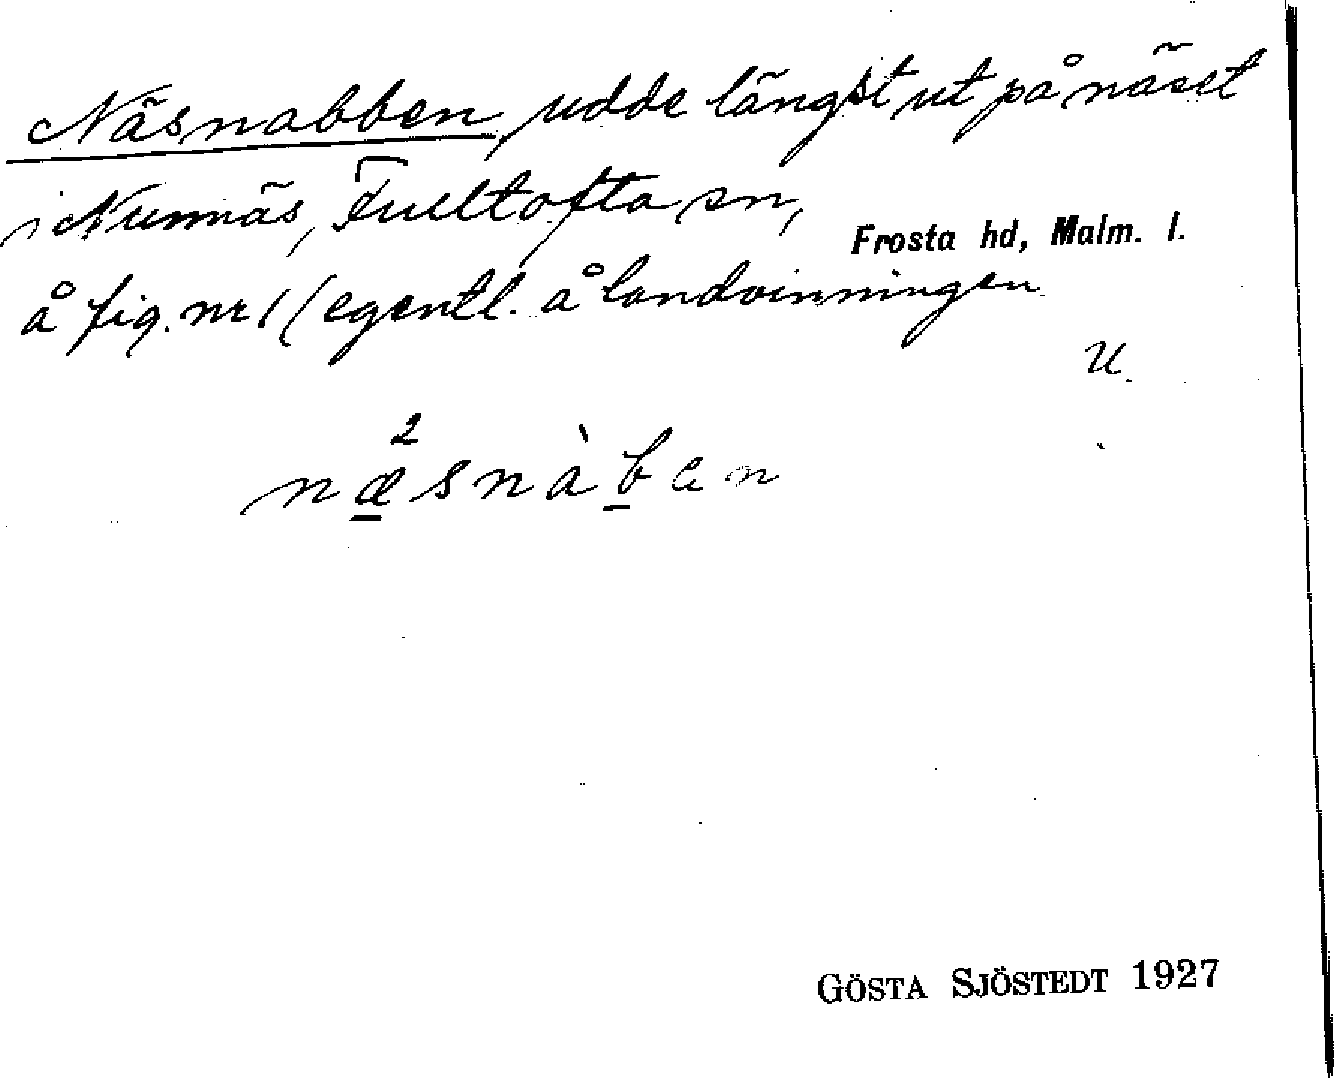 Näsnabben, udde längst ut på näset
i Nunnäs, Fulltofta sn,
Frosta hd, Malm. l.
å fig. nr 1 (egentl. å landvinningen
U.
2
næsnàben
GÖSTA SJÖSTEDT 1927